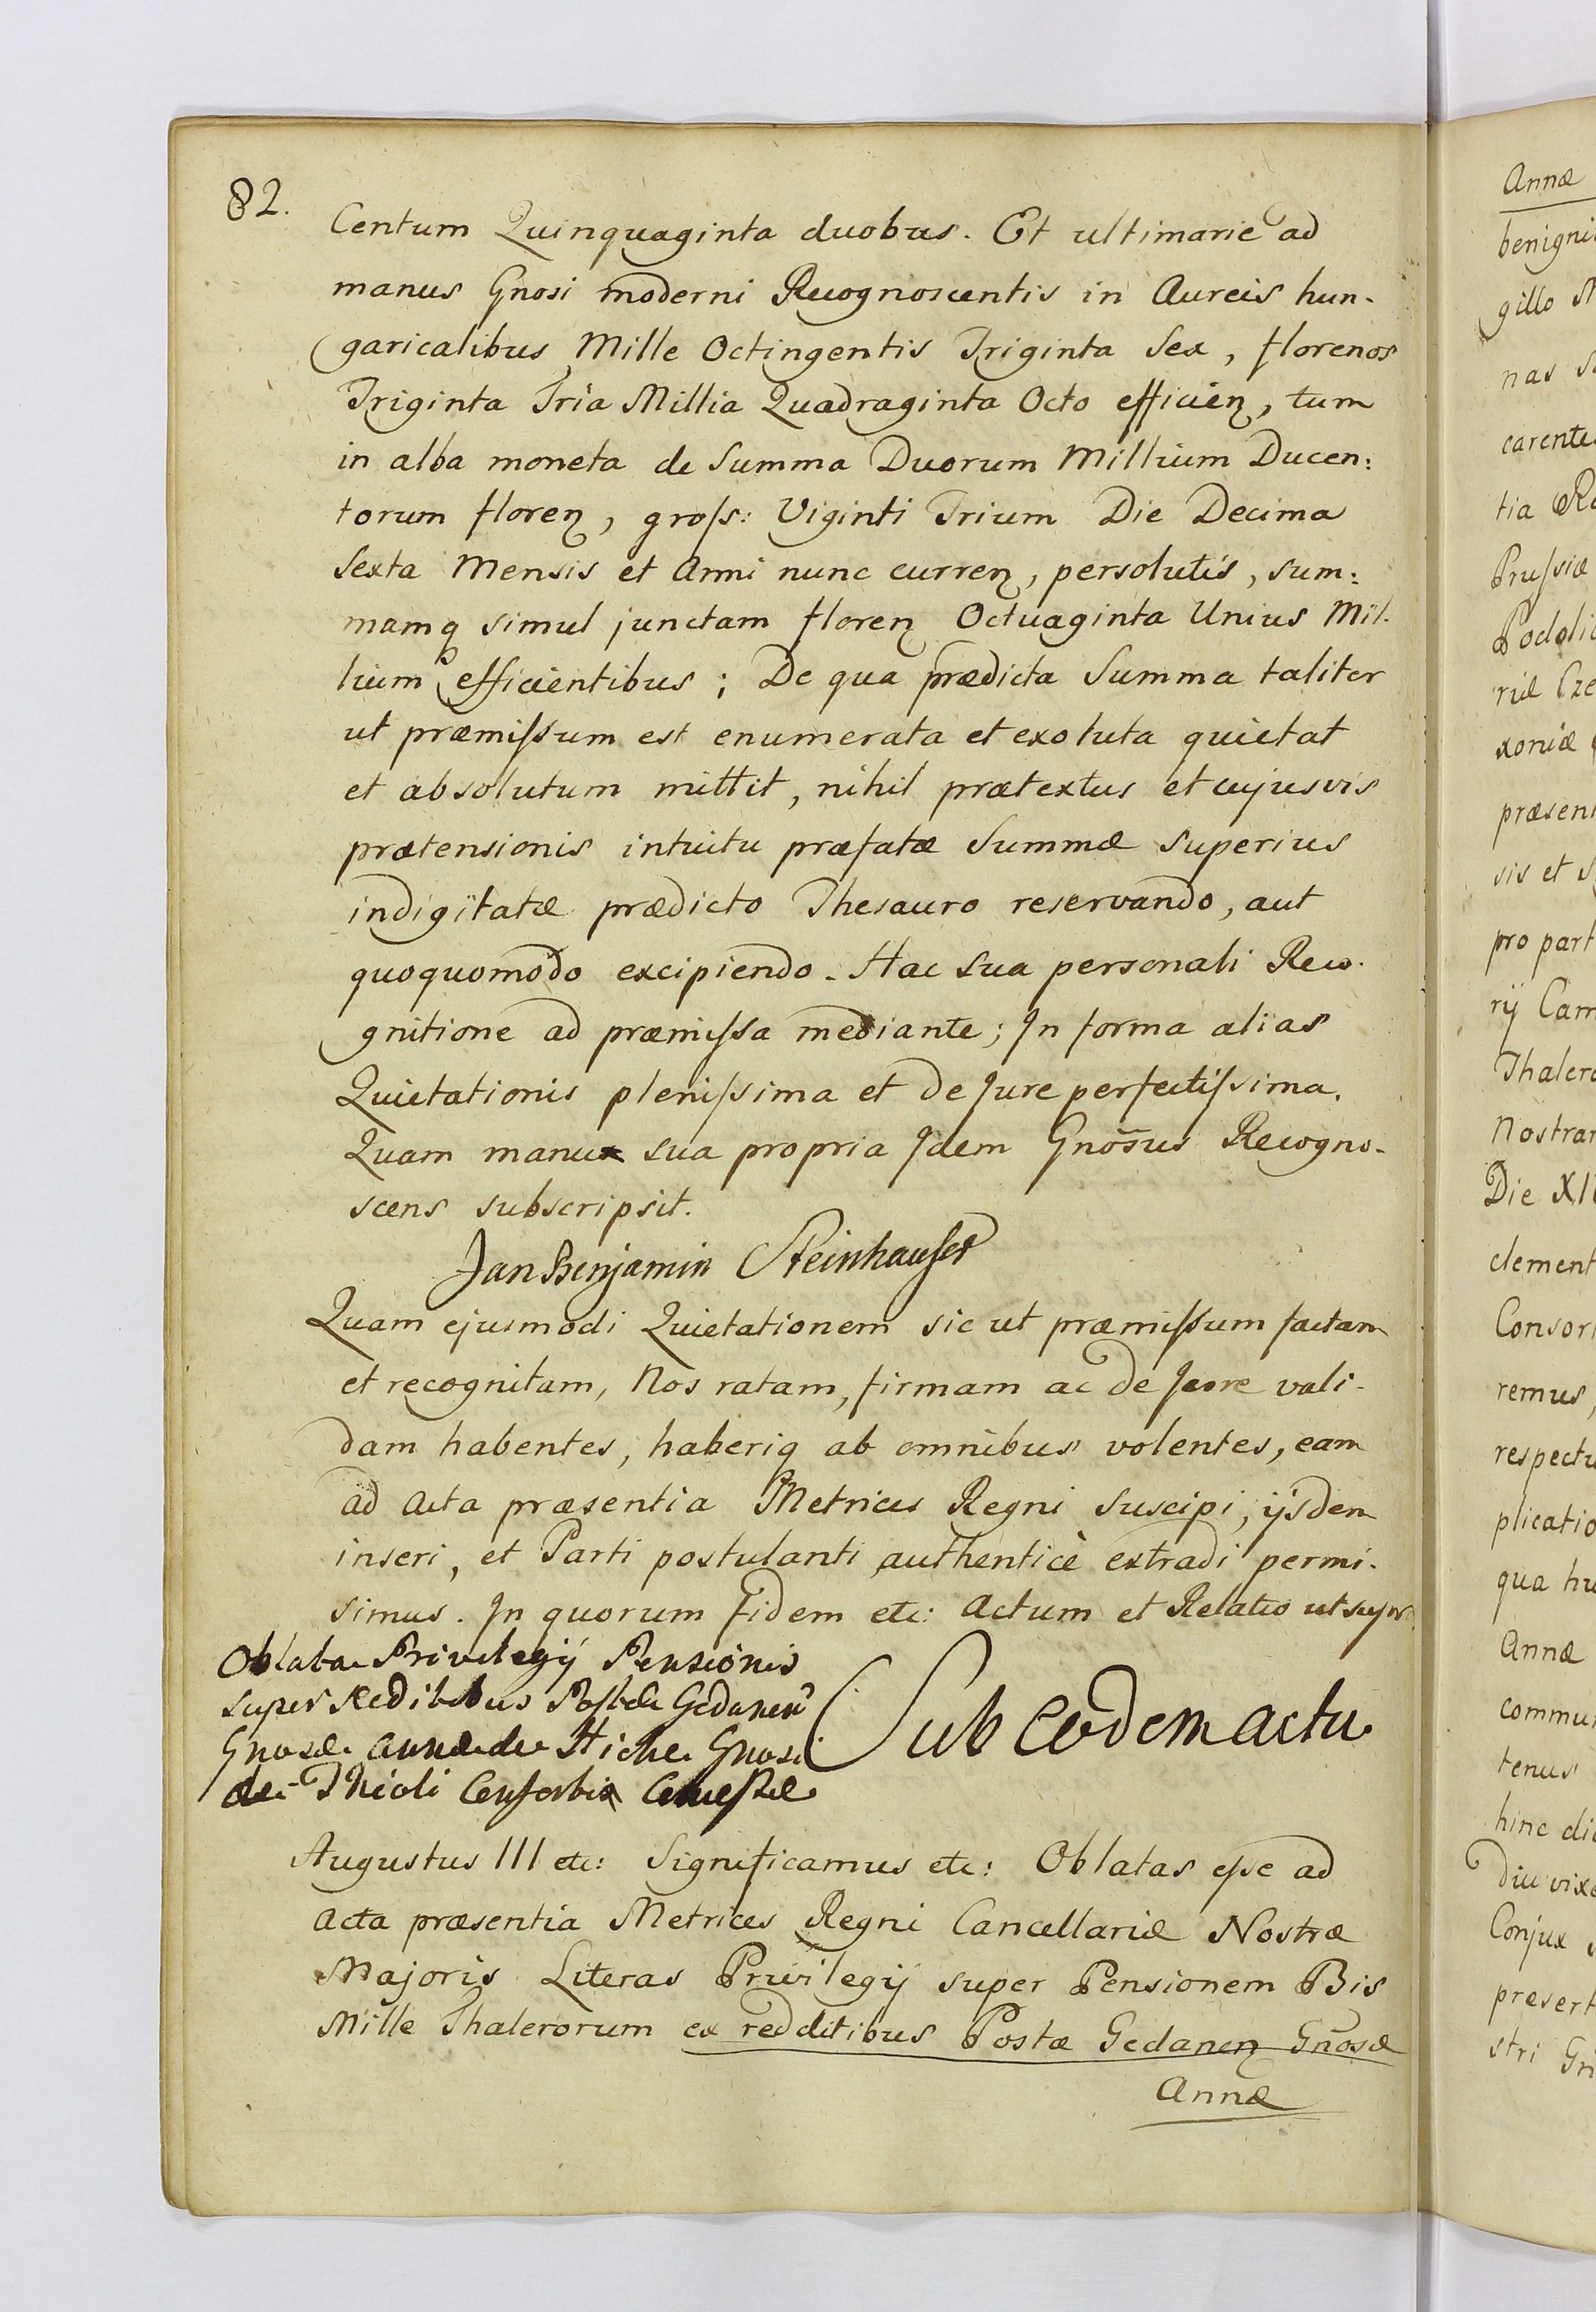 82.
Centum Quinquaginta duobus. Et ultimarie ad
manus Gnosi moderni Recognoscentis in Aureis hun-
garicalibus Mille Octingentis Triginta Sex, florenos
Triginta Tria Millia Quadraginta Octo efficien, tum
in alba moneta de Summa Duorum Millium Ducen:
torum floren, gross: Viginti Trium Die Decima
Sexta Mensis et Anni nunc curren, persolutis, sum:
mamq simul junctam floren Octuaginta Unius Mil-
lium efficientibus; De qua prædicta Summa taliter
ut præmissum est enumerata et exoluta quietat
et absolutum mittit, nihil prætextus et cujusvis
prætensionis intuitu præfatæ Summæ superius
indigitatæ prædicto Thesauro reservando, aut
quoquomodo excipiendo. Hac sua personali Reco-
gnitione ad præmissa mediante; In forma alias
Quietationis plenissima et de Jure perfectissima.
Quam manu sua propria Idem Gnosus Recogno-
scens subscripsit.
Jan Benjamin Steinhauser
Quam ejusmodi Quietationem sic ut præmissum factam
et recognitam, Nos ratam, firmam ac de Jure vali-
dam habentes, haberiq ab omnibus volentes, eam
ad Acta præsentia Metrices Regni suscipi, ijsdem
inseri, et Parti postulanti authenticè extradi permi-
simus. In quorum fidem etc: Actum et Relatio ut supra
Oblata Privilegij Pensionis
super Redditibus Postæ Gedanen
Gnosæ Annæ de Hiche Gnosi
de Thioli Consortis
Sub eodem actu
Augustus III etc: Significamus etc: Oblatas esse ad
Acta præsentia Metrices Regni Cancellariæ Nostræ
Majoris Literas Privilegij super Pensionem Bis
Mille Thalerorum ex redditibus Postæ Gedanen Gnosæ
Annæ
Annæ
benigni
gillo
nas
carente
tia
Prussiæ
Podoli
riæ Cze
xoniæ
præsen
sis et
pro part
rij Cam
Thaler
Nostra
Die
clement
Consor
remus,
respectu
plicatio
qua hu
Annæ
commu
tenus
hinc di
Diu vix
Conjux
presert
stri